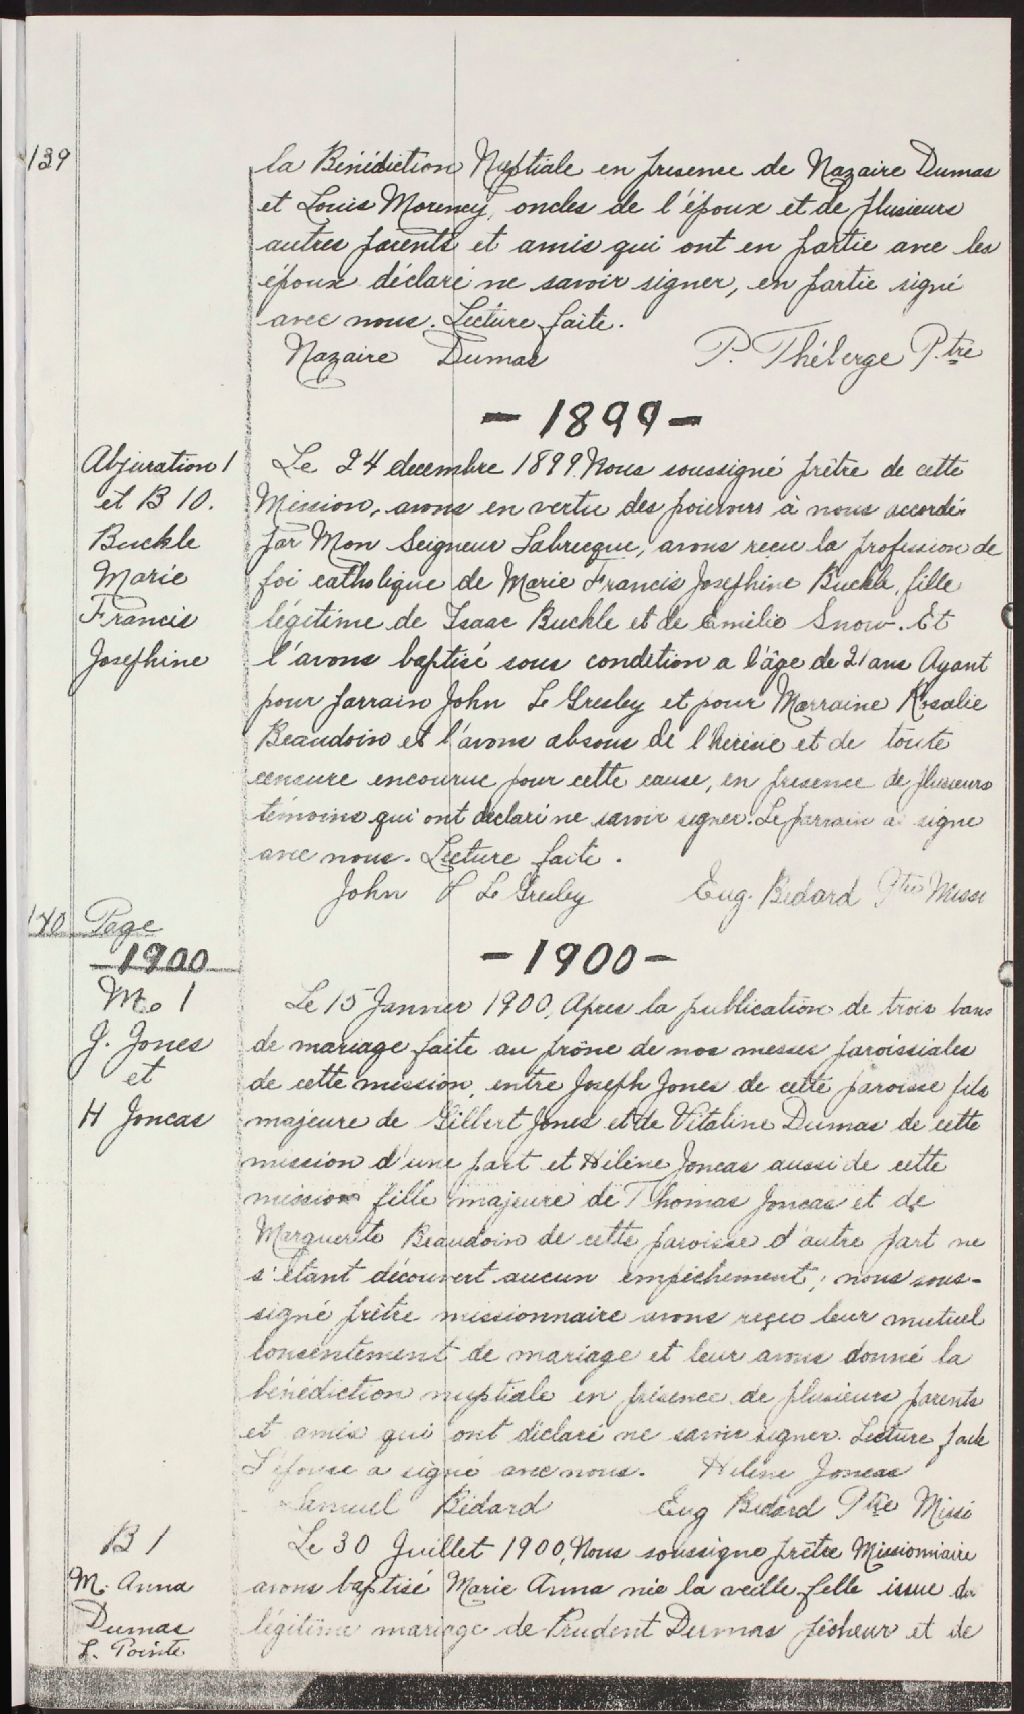 139
la Bénédiction Nuptiale en presence de Nazaire Dumas
et Louis Morency, oncles de l'époux et de plusieurs
autres parents et amis qui ont en partie avec les
époux déclaré ne savoir signer, en partie signé
avec nous. Lecture faite.
Nazaire Dumas P. Théberge Ptre
- 1899 -
Abjuration 1
et B 10.
Buckle
Marie
Francis
Josephine
Le 24 decembre 1899. Nous soussigné prêtre de cette
Mission, avons en vertu des pouvoirs à nous accordé
par Mon Seigneur Labrecque, avons recu la profession de
foi catholique de Marie Francis Josephine Buckle, fille
légitime de Isaac Buckle et de Emilie Snow. Et
l'avons baptisé sous condition a l'âge de 21 ans Ayant
pour parrain John Le Gresley et pour Marraine Rosalie
Beaudoin et l'avons absous de l'hérésie et de toute
censure encourue pour cette cause, en presence de plusieurs
témoins qui ont déclaré ne savoir signer. Le parrain a signé
avec nous. Lecture faite.
John Le Gresley Eug. Bedard Ptre Missi
140 Page
1900
- 1900 -
M. 1
J. Jones
et
H Joncas
Le 15 Janvier 1900, Apres la publication de trois bans
de mariage faite au prône de nos messes paroissiales
de cette mission, entre Joseph Jones de cette paroisse fils
majeure de Gilbert Jones et de Vitaline Dumas de cette
mission d'une part et Hélène Joncas aussi de cette
mission fille majeure de Thomas Joncas et de
Marguerite Beaudoin de cette paroisse d'autre part ne
s'étant découvert aucun empêchement; nous sous-
signé prêtre missionnaire avons reçu leur mutuel
consentement de mariage et leur avons donné la
bénédiction nuptiale en présence de plusieurs parents
et amis qui ont déclaré ne savoir signer. Lecture faite
L'épouse a signé avec nous. Hélène Joncas
Samuel Bédard Eug Bedard Ptre Missi
B 1
M. Anna
Dumas
L. Pointe
Le 30 Juillet 1900, Nous soussigne prêtre Missionniaire
avons baptisé Marie Anna née la veille fille issue du
légitime mariage de Prudent Dumas pêcheur et de